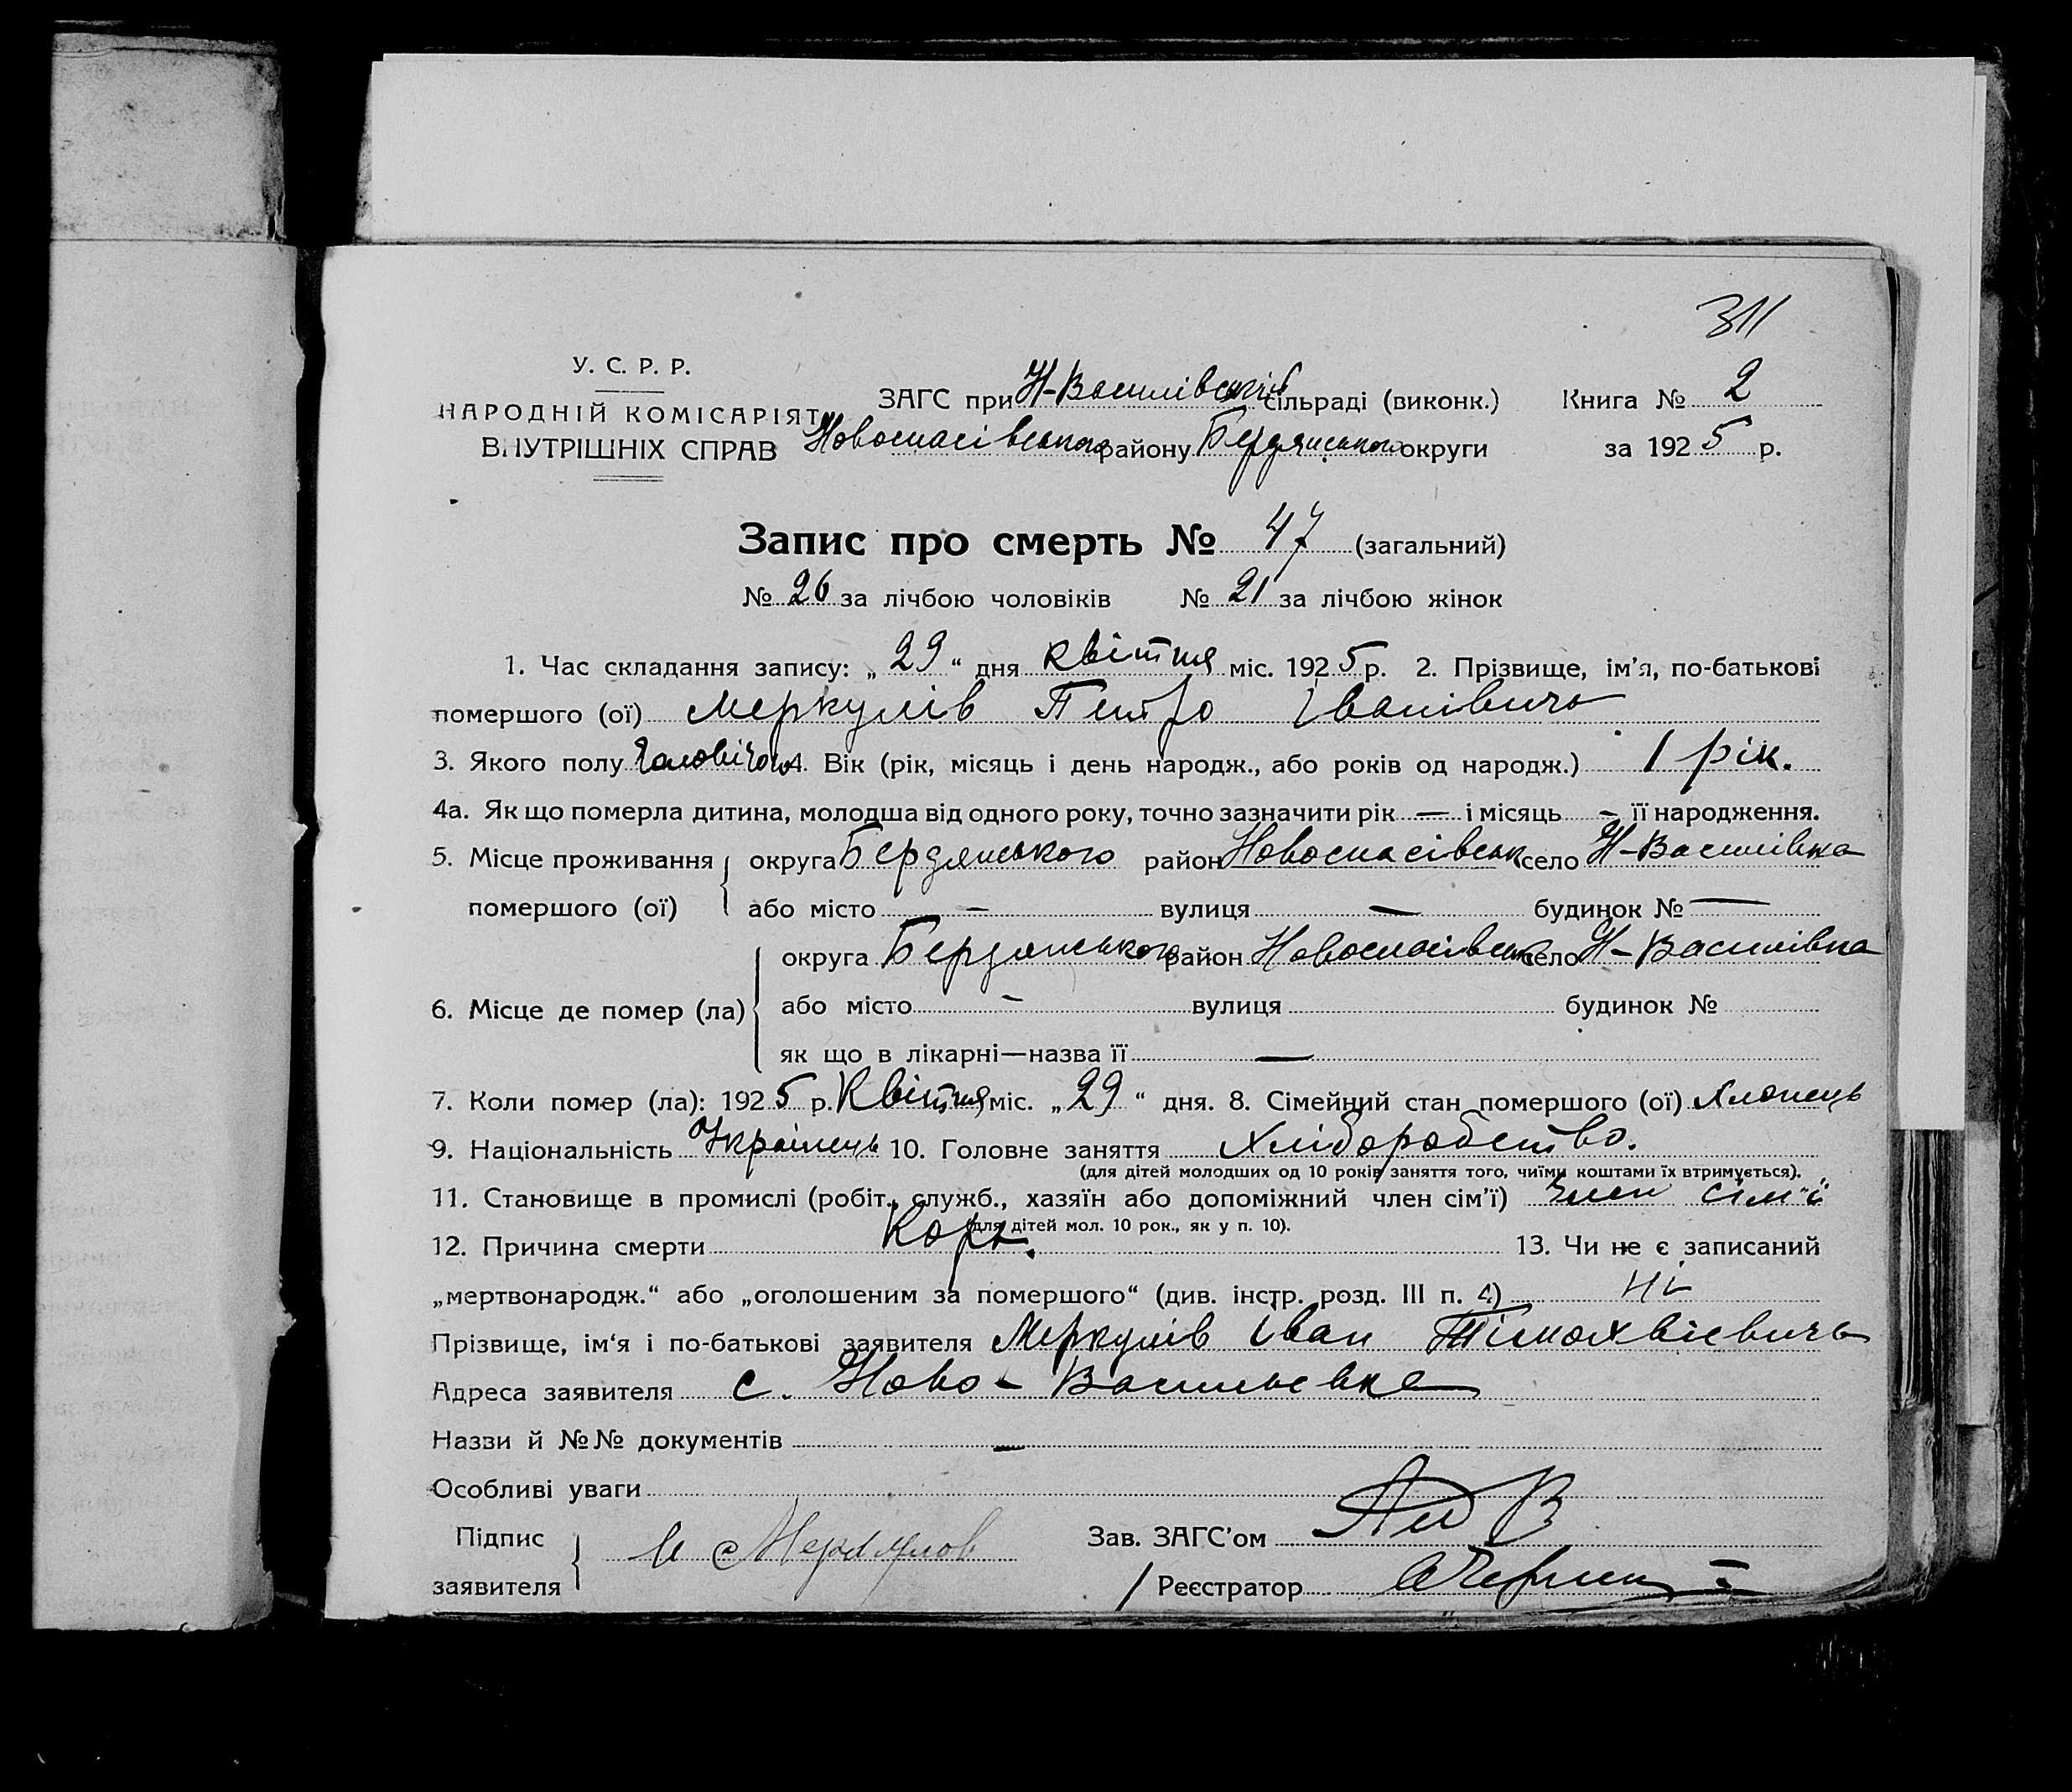 311
У. С. Р. Р.
НАРОДНІЙ КОМІСАРІЯТ
ВНУТРІШНІХ СПРАВ
ЗАГС при Н-Василівській сільраді (виконк.) Книга № 2
Новоспасівського району Бердянського округи за 1925 р.
Запис про смерть № 47 (загальний)
№ 26 за лічбою чоловіків № 21 за лічбою жінок
1. Час складання запису: „29“ дня квітня міс. 1925 р. 2. Прізвище, ім’я, по-батькові
помершого (ої) Меркулів Петро Іванівичь
3. Якого полу Чоловічого 4. Вік (рік, місяць і день народж., або років од народж.) 1 рік.
4а. Як що померла дитина, молодша від одного року, точно зазначити рік — і місяць — її народження.
5. Місце проживання помершого (ої) округа Бердянського район Новоспасівськ село Н-Василівка
або місто — вулиця — будинок № —
6. Місце де помер (ла) округа Бердянського район Новоспасівськ село Н-Василівка
або місто — вулиця будинок №
як що в лікарні—назва її —
7. Коли помер (ла): 1925 р. Квітня міс. „29“ дня. 8. Сімейний стан помершого (ої) Хлопець
9. Національність Українець 10. Головне заняття Хліборобство.
(для дітей молодших од 10 років заняття того, чиїми коштами їх втримується).
11. Становище в промислі (робіт., служб., хазяїн або допоміжний член сім’ї) член сім"ї
(для дітей мол. 10 рок., як у п. 10).
12. Причина смерти Корь. 13. Чи не є записаний
„мертвонародж.“ або „оголошеним за помершого“ (див. інстр. розд. III п. 4) ні
Прізвище, ім‘я і по-батькові заявителя Меркулів Іван Тімохвієвичь
Адреса заявителя с. Ново-Васильевка
Назви й №№ документів —
Особливі уваги
Підпис заявителя И Меркулов
Зав. ЗАГС’ом
Реєстратор